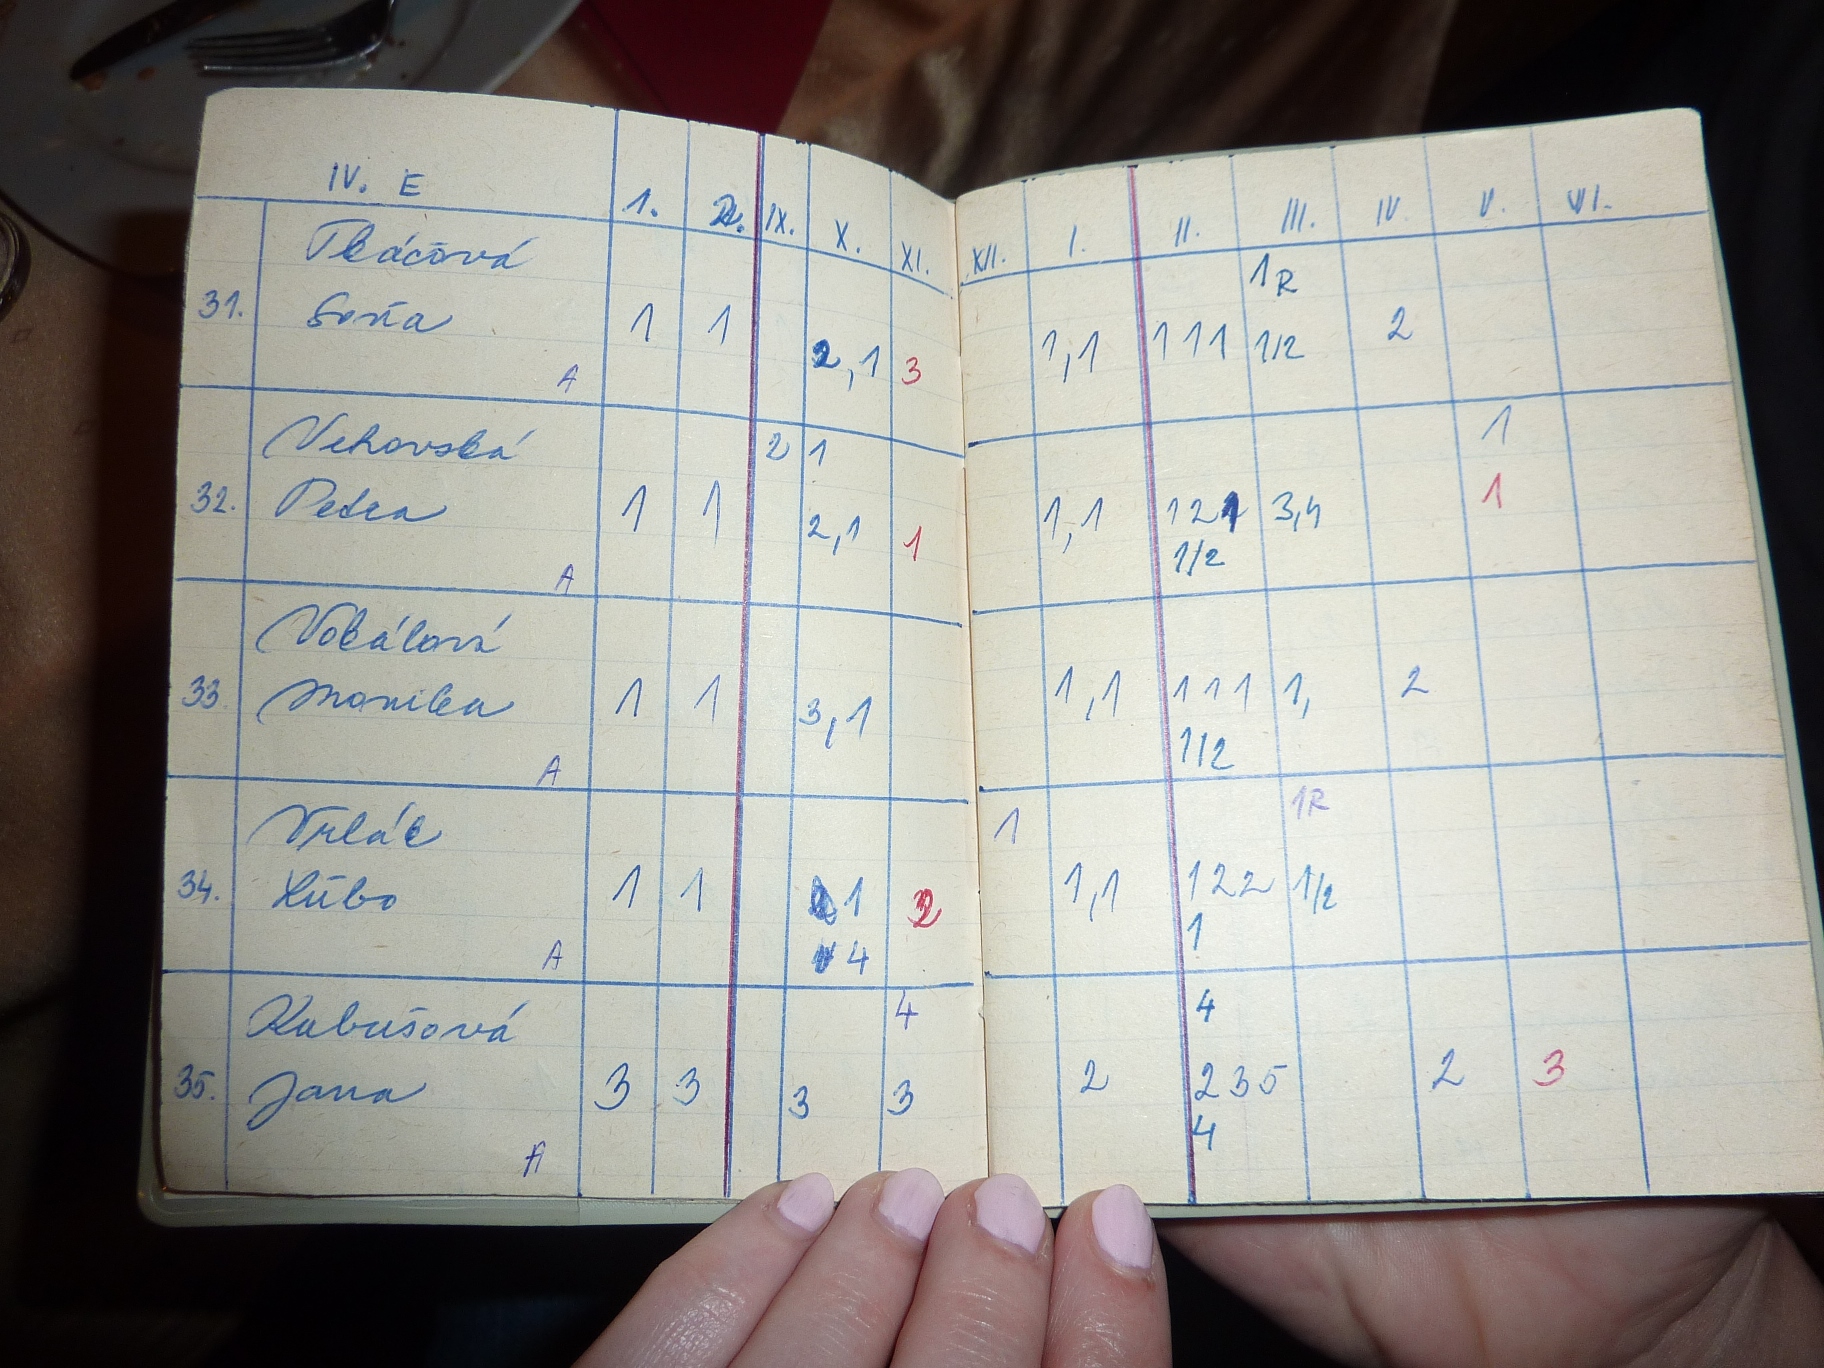 IV. E 1. 2. IX. X. XI. XII. I. II. III. IV. V. VI.
Tkáčová 1R
31. Soňa 1 1 2,1 3 1,1 111 1/2 2
A
Vehovská 2 1 1
32. Petra 1 1 2,1 1 1,1 121 3,4 1
A 1/2
Vokálová
33. Monika 1 1 3,1 1,1 111 1, 2
A 1/2
Vrlák 1 1R
34. Ľubo 1 1 1 2 1,1 122 1/2
A 4 1
Kubušová 4 4
35. Jana 3 3 3 3 2 235 2 3
A 4